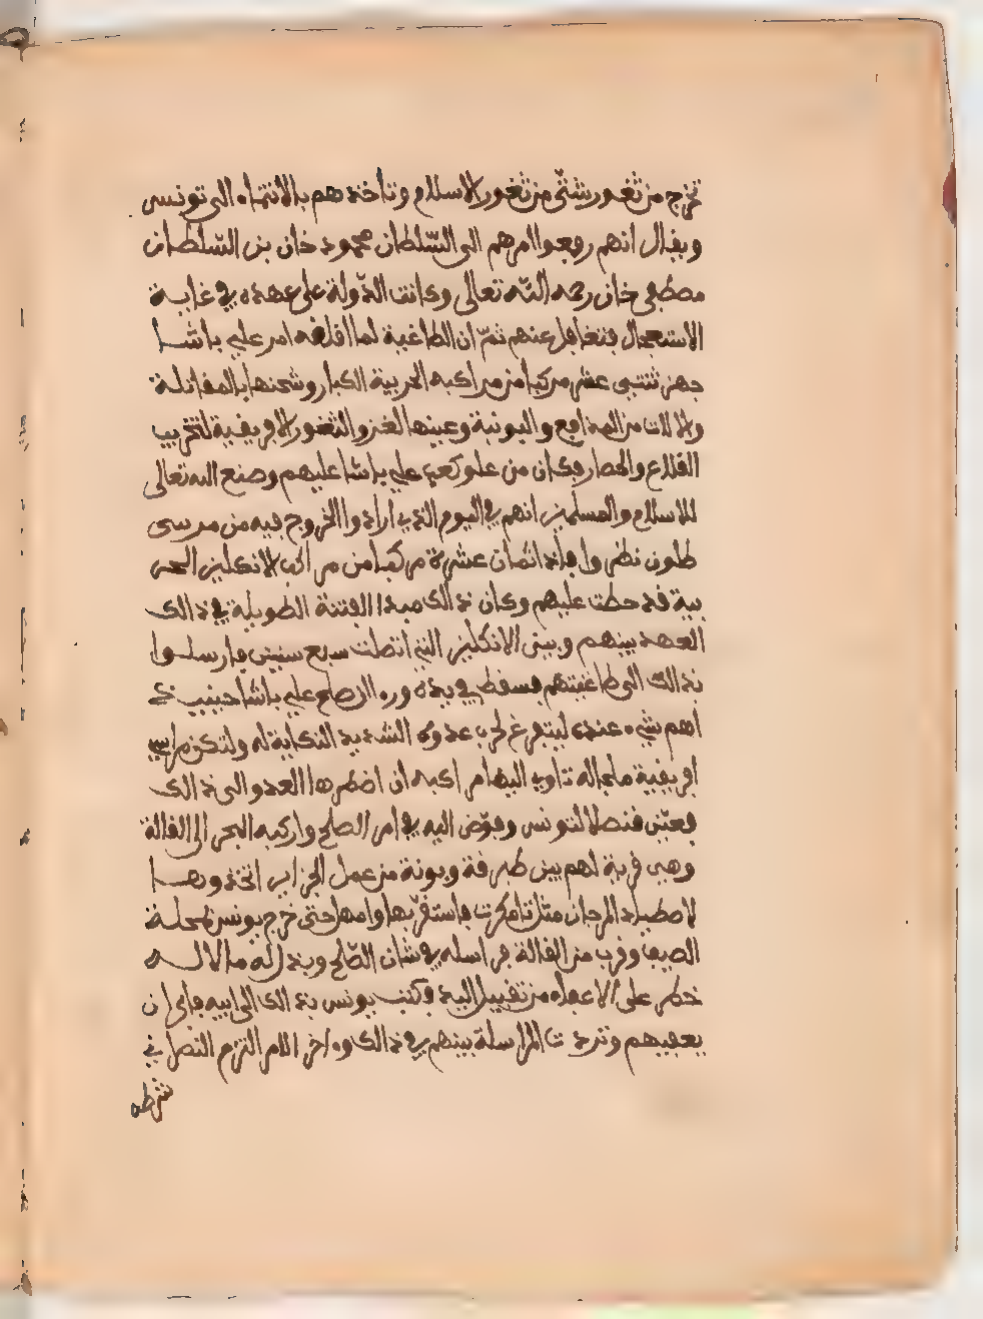 تخرج من ثغور شتّى من ثغور الاسلام وتاخذهم بالانتماء الى تونس
ويقال انهم رفعوا امرهم الى السّلطان محمود خان بن السّلطان
مصطفى خان رحمه الله تعالى وكانت الدّولة على عهده في غاية
الاستعجال فتغافل عنهم ثمّ ان الطاغية لما اقلقه امر علي باشا
جهز ثنتي عشر مركبا من مراكبه الحربية الكبار وشحنها بالمقاتلة
والالات من المدافع والبونبة وعينها لغزو الثغور الافريقية لتخريب
القلاع والحصار فكان من علو كعب علي باشا عليهم وصنع الله تعالى
للاسلام والمسلمين انهم في اليوم الذي ارادوا الخروج فيه من مرسى
طلون نظروا فاذا ثمان عشرة مركبا من مراكب الانكليز الحر
بية قد حطت عليهم وكان ذالك مبدا الفتنة الطويلة في ذالك
العهد بينهم وبين الانكليز التي اتصلت سبع سنين فارسلوا
بذالك الى طاغيتهم فسقط في يده وراا الصلح علي باشا حينيذ
اهم شيء عنده ليتفرغ لحرب عدوه الشديد النكاية له ولتكن مراسي
افريقية ملجا له تاوي اليها مراكبه ان اضطرها العدو الى ذالك
فعيّن قنصلا لتونس وفوّض اليه في امر الصلح واركبه البحر الى القالة
وهي قرية لهم بين طبرقة وبونة من عمل الجزاير اتخذوها
لاصطياد المرجان مثل تامكرت فاستقرّ بها وامهل حتى خرج يونس لمحلة
الصيف وقرب من القالة فراسله في شان الصّلح وبذل له ما لا له
خطر على الاعفاء من تقبيل اليد فكتب يونس بذالك الى ابيه فابى ان
يعفيهم وترددت المراسلة بينهم في ذالك وءاخر الامر التزم النصراني
شرطه